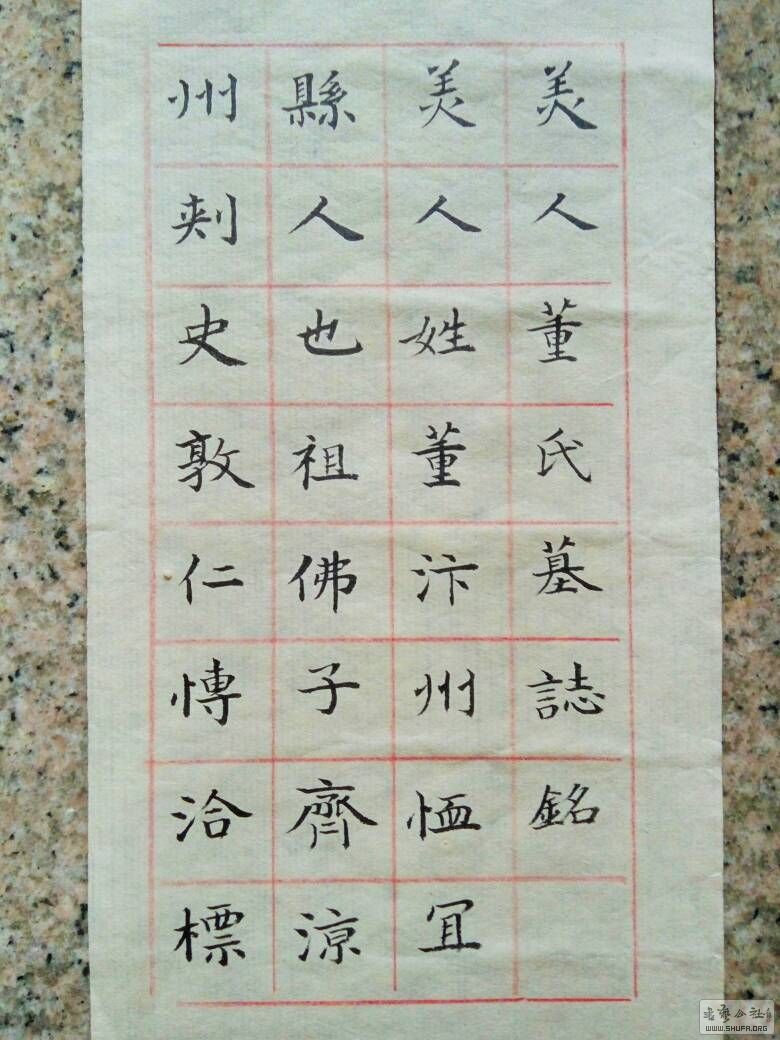 美人董氏墓誌銘
美人姓董汴州恤冝
縣人也祖佛子齊涼
州刾史敦仁愽洽標
書藝公社
WWW.SHUFA.ORG